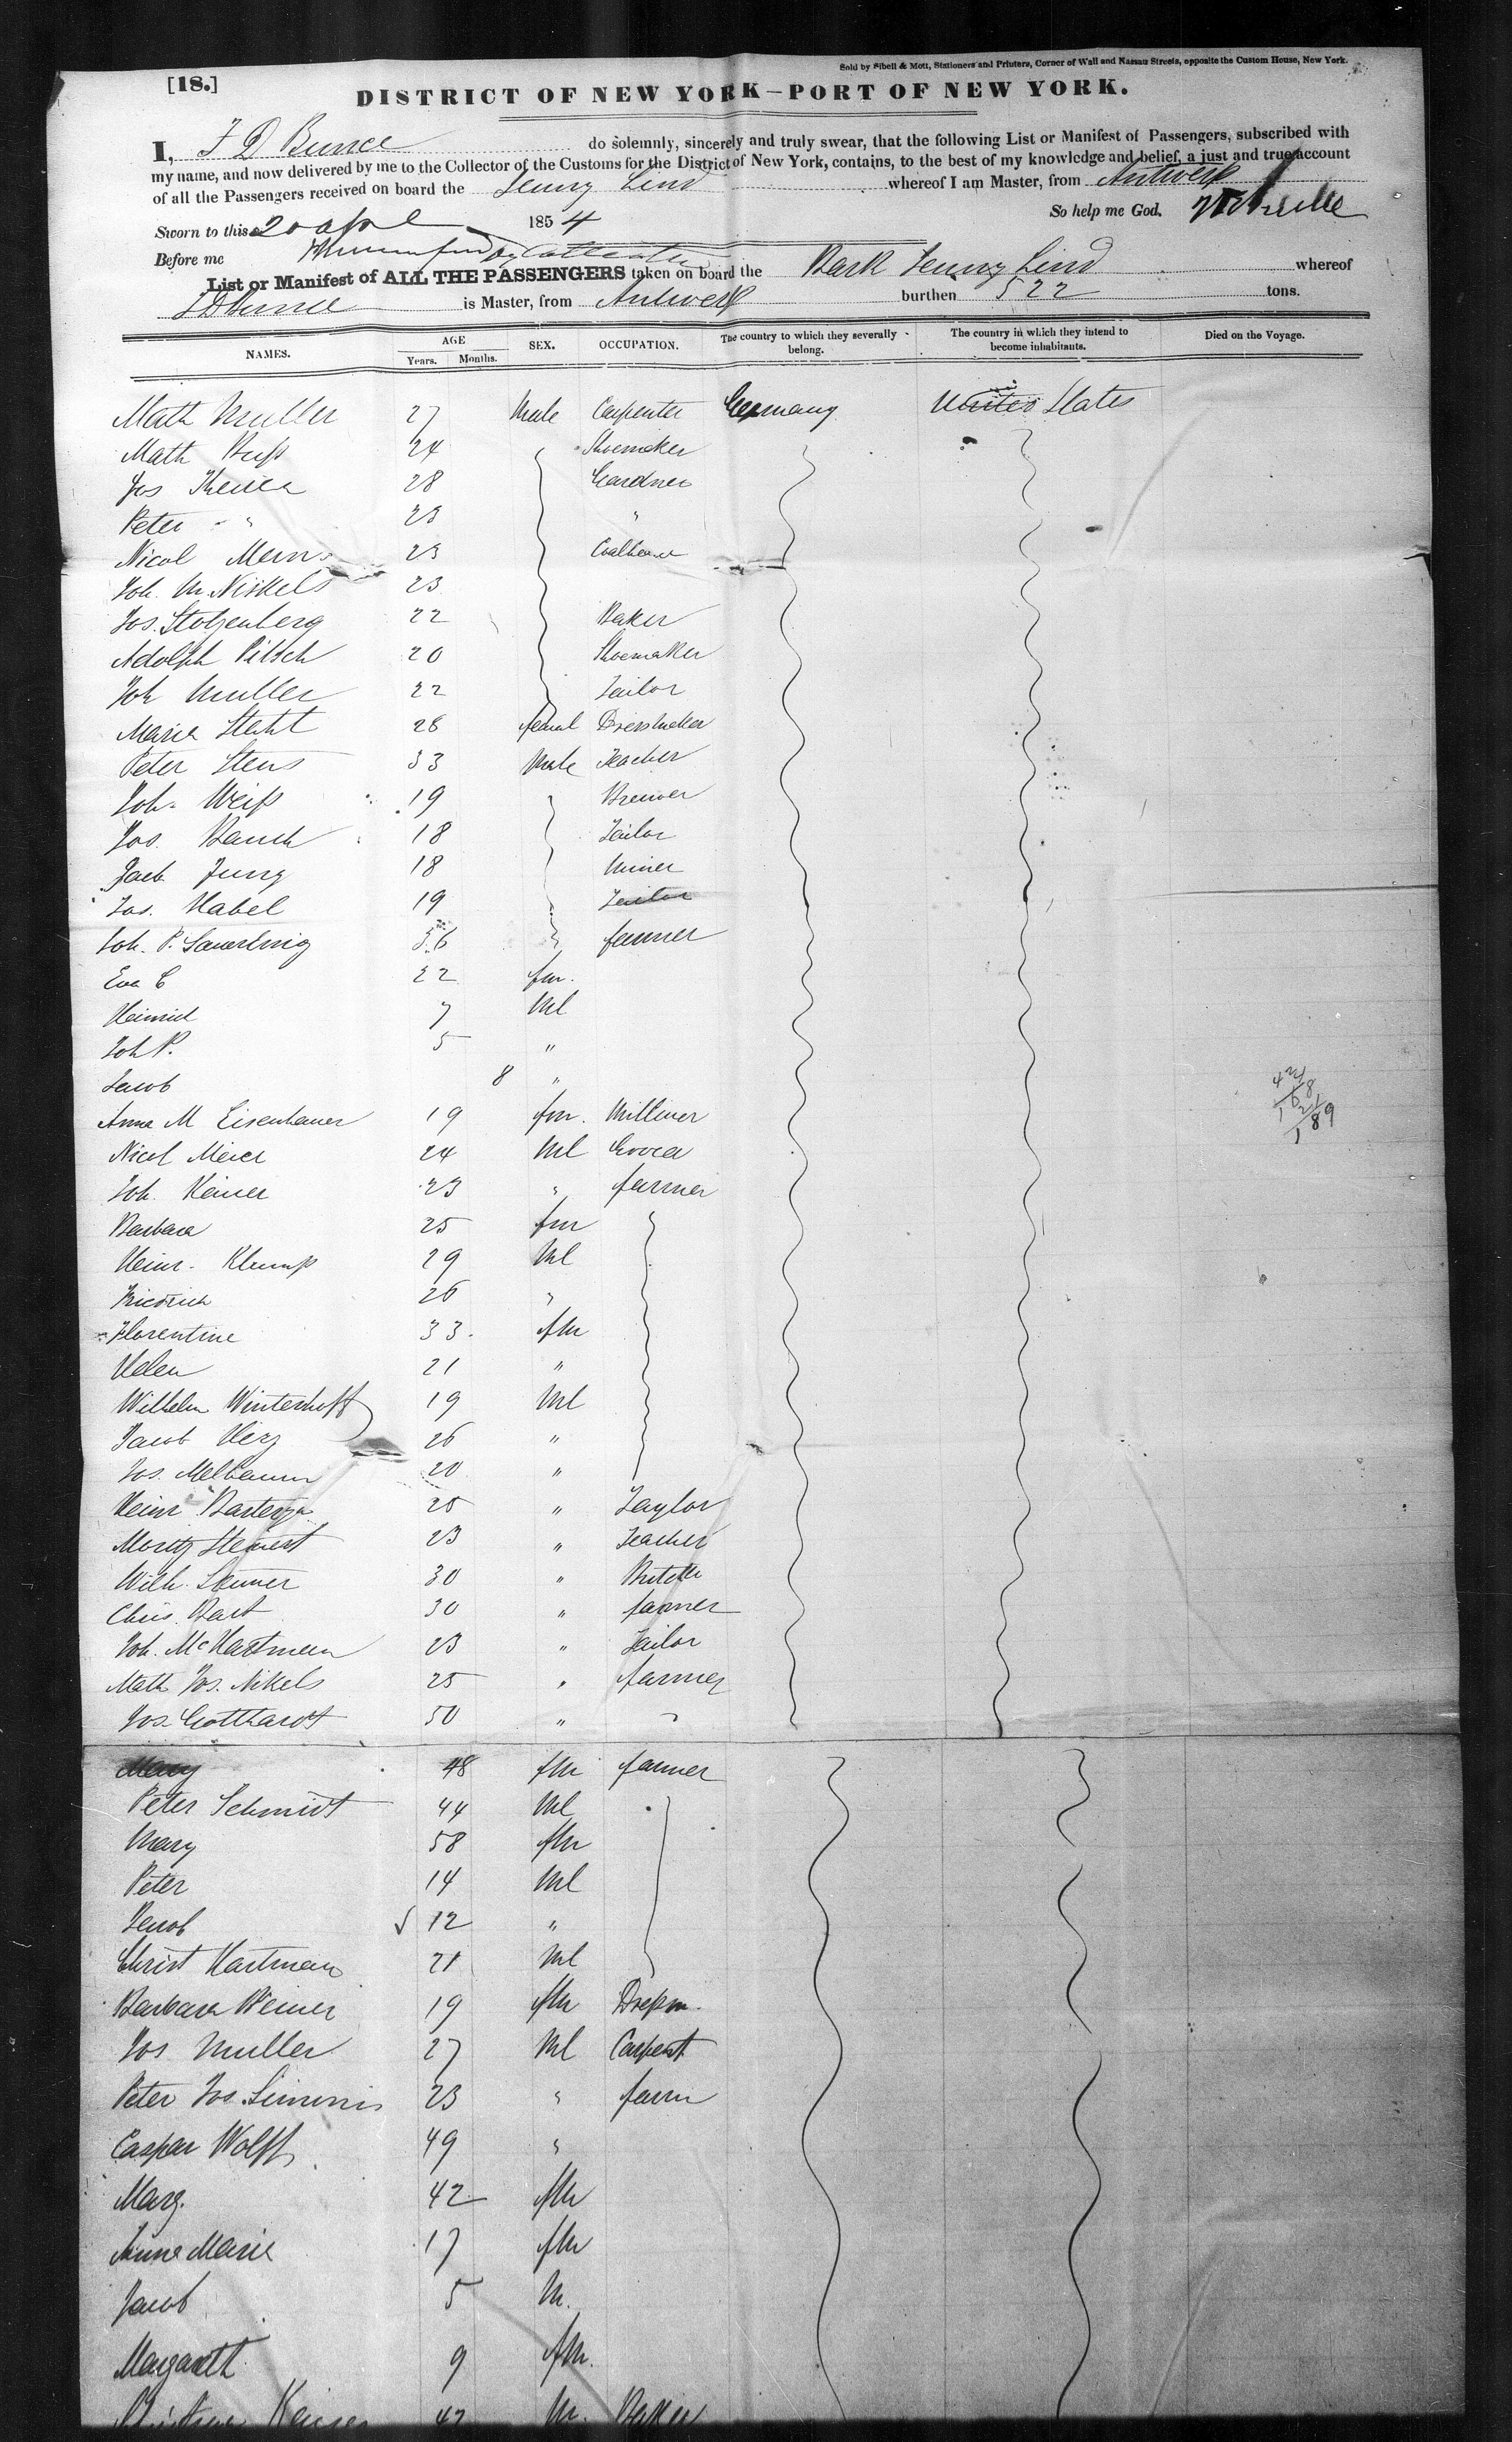 Sold by Sibell & Mott, Stationers and Printers, Corner of Wall and Nassau Streets, opposite the Custom House, New York.
[18.]
DISTRICT OF NEW YORK—PORT OF NEW YORK.
I, F D Bunce do solemnly, sincerely and truly swear, that the following List or Manifest of Passengers, subscribed with
my name, and now delivered by me to the Collector of the Customs for the District of New York, contains, to the best of my knowledge and belief, a just and true account
of all the Passengers received on board the Jenny Lind whereof I am Master, from Antwerp
Sworn to this 20 apl 1854 So help me God.
Before me
List or Manifest of ALL THE PASSENGERS taken on board the Bark Jenny Lind whereof
F D Bunce is Master, from Antwerp burthen 522 tons.
NAMES. AGE Years. Months. SEX. OCCUPATION. The country to which they severally belong. The country in which they intend to become inhabitants. Died on the Voyage.
Math Muller 27 Male Carpenter Germany United States
Math Buß 24 Shoemaker
Jos 28 Gardner
Peter " " 23 "
Nicol 23
Joh. M. Niskels 23
Jos. Stolzenberg 22 Baker
Adolph Pitsch 20 Shoemaker
Joh Muller 22 Tailor
Maria Steht 28 femal Dressmaker
Peter Stens 33 Male Teacher
Joh. Weiß 19 Brewer
Jos. Bauch 18 Tailor
Jacb Jung 18 Miner
Jos. Habel 19 Tailor
Joh. P. 36 farmer
Eva C 22 fm.
Heinrich 7 Ml
Joh P. 5 "
Jacob 8 "
Anna M Eisenhauer 19 fm. Milliner
Nicol Meier 24 Ml Grocer
Joh. Keiner 23 " farmer
Barbara 25 fm
Heinr. Klump 29 Ml
Friedrich 26 "
Florentine 33 fm
Helen 21 "
Wilhelm Winterhoff 19 Ml
Jacob Herz 26 "
Jos. Melbaum 20 "
Heinr 25 " Taylor
Moritz Steinert 23 " Teacher
Wilh. 30 " Butcher
Chris. Bart 30 " farmer
Joh. Mc Hartmann 23 " Tailor
Math Jos. Nikels 25 " farmer
Jos. Gotthardt 50 " "
Mary 48 fm farmer
Peter Schmidt 44 Ml
Mary 58 fm
Peter 14 Ml
Jacob 12 "
Christ Hartman 21 Ml
Barbara Weiner 19 fm Dreßm.
Jos Muller 27 Ml Carpent
Peter Jos. Simmis 23 " farm
Caspar Wolff 49 "
Marg. 42 fm
Anna Marie 17 fm
Jacob 5 M.
Margareth 9 fm.
Keiser 42 M. Baker